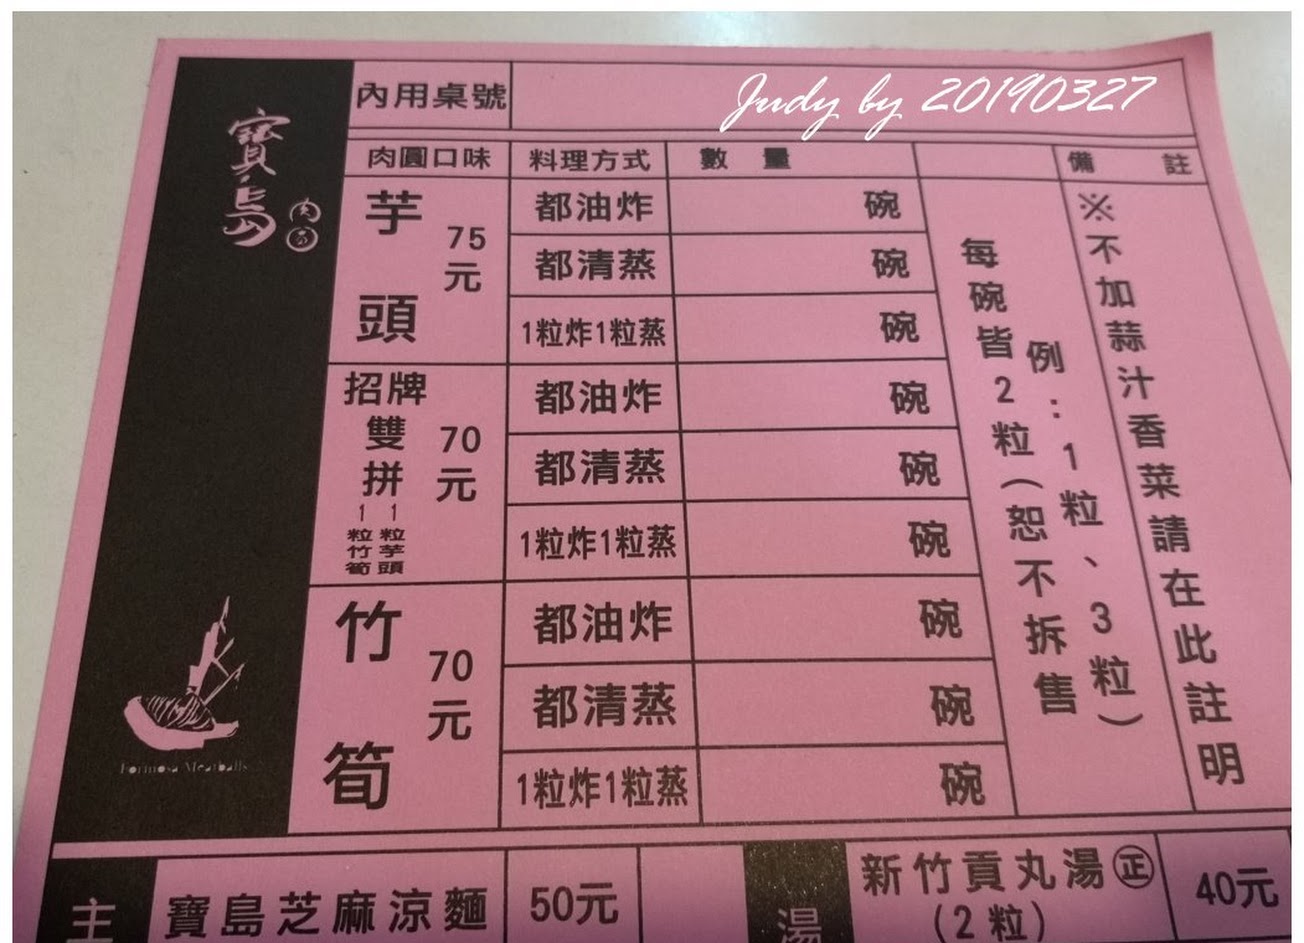 Judy by 20190327
寶島
肉圓
Formosa Meatballs
內用桌號
肉圓口味 料理方式 數量 備註
芋頭 75元
都油炸 碗
都清蒸 碗
1粒炸1粒蒸 碗
招牌雙拼 70元
1粒芋頭
1粒竹筍
都油炸 碗
都清蒸 碗
1粒炸1粒蒸 碗
竹筍 70元
都油炸 碗
都清蒸 碗
1粒炸1粒蒸 碗
例:1粒、3粒)
每碗皆2粒(恕不拆售
※不加蒜汁香菜請在此註明
主
寶島芝麻涼麵 50元
湯
新竹貢丸湯㊣ 40元
(2粒)